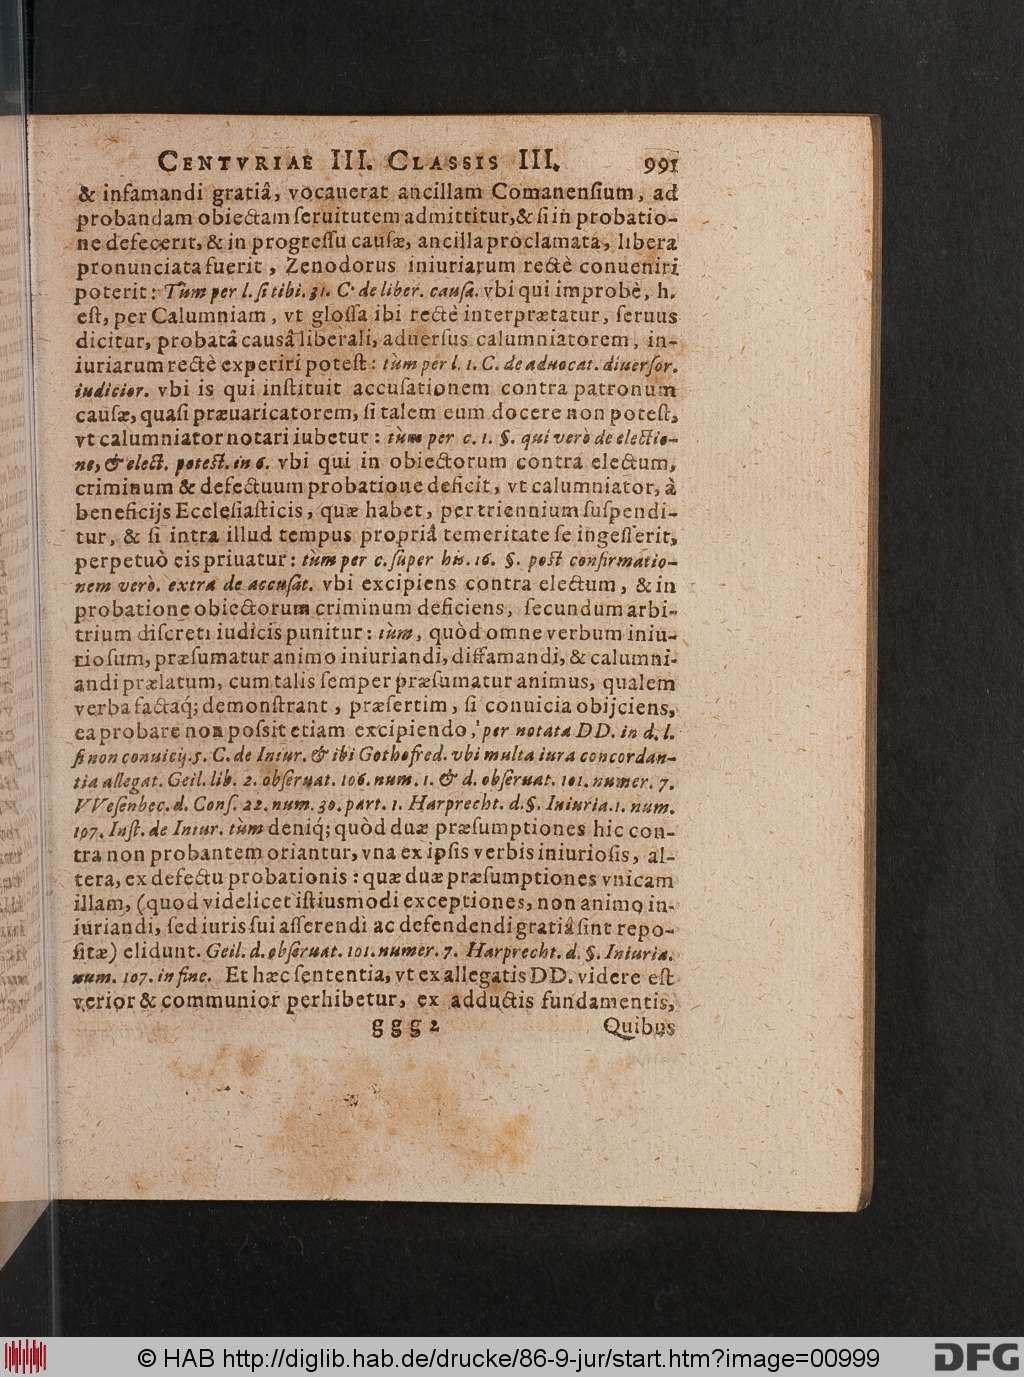 CENTVRIAE III. CLASSIS III. 991
& infamandi gratiâ, vocauerat ancillam Comanenſium, ad
probandam obiectam ſeruitutem admittitur, & ſi in probatio-
ne defecerit, & in progreſſu cauſæ, ancilla proclamata, libera
pronunciata fuerit, Zenodorus iniuriarum rectè conueniri
poterit: Tùm per l. ſi tibi. 31. C. de liber. cauſa. vbi qui improbè, h.
eſt, per Calumniam, vt gloſſa ibi rectè interprætatur, ſeruus
dicitur, probatâ causâ liberali, aduerſus calumniatorem, in-
iuriarum rectè experiri poteſt: tùm per l. 1. C. de aduocat. diuerſor.
iudicior. vbi is qui inſtituit accuſationem contra patronum
cauſæ, quaſi præuaricatorem, ſi talem eum docere non poteſt,
vt calumniator notari iubetur: tùm per c. 1. §. qui verò de electio-
ne, & elect. poteſt. in 6. vbi qui in obiectorum contra electum,
criminum & defectuum probatione deficit, vt calumniator, à
beneficijs Eccleſiaſticis, quæ habet, per triennium ſuſpendi-
tur, & ſi intra illud tempus propriâ temeritate ſe ingeſſerit,
perpetuò eis priuatur: tùm per c. ſuper his. 16. §. poſt confirmatio-
nem verò. extra de accuſat. vbi excipiens contra electum, & in
probatione obiectorum criminum deficiens, ſecundum arbi-
trium diſcreti iudicis punitur: tùm, quòd omne verbum iniu-
rioſum, præſumatur animo iniuriandi, diffamandi, & calumni-
andi prælatum, cum talis ſemper præſumatur animus, qualem
verba factaq́; demonſtrant, præſertim, ſi conuicia obijciens,
ea probare non poſsit etiam excipiendo, per notata DD. in d. l.
ſi non conuicij. 5. C. de Iniur. & ibi Gothofred. vbi multa iura concordan-
tia allegat. Geil. lib. 2. obſeruat. 106. num. 1. & d. obſeruat. 101. numer. 7.
VVeſenbec. d. Conſ. 22. num. 30. part. 1. Harprecht. d. §. Iniuria. 1. num.
107. Inſt. de Iniur. tùm deniq́; quòd duæ præſumptiones hic con-
tra non probantem oriantur, vna ex ipſis verbis iniurioſis, al-
tera, ex defectu probationis: quæ duæ præſumptiones vnicam
illam, (quod videlicet iſtiusmodi exceptiones, non animo in-
iuriandi, ſed iuris ſui aſſerendi ac defendendi gratiâ ſint repo-
ſitæ) elidunt. Geil. d. obſeruat. 101. numer. 7. Harprecht. d. §. Iniuria.
num. 107. in fine. Et hæc ſententia, vt ex allegatis DD. videre eſt
verior & communior perhibetur, ex adductis fundamentis,
g g g 2 Quibus
© HAB http://diglib.hab.de/drucke/86-9-jur/start.htm?image=00999
DFG